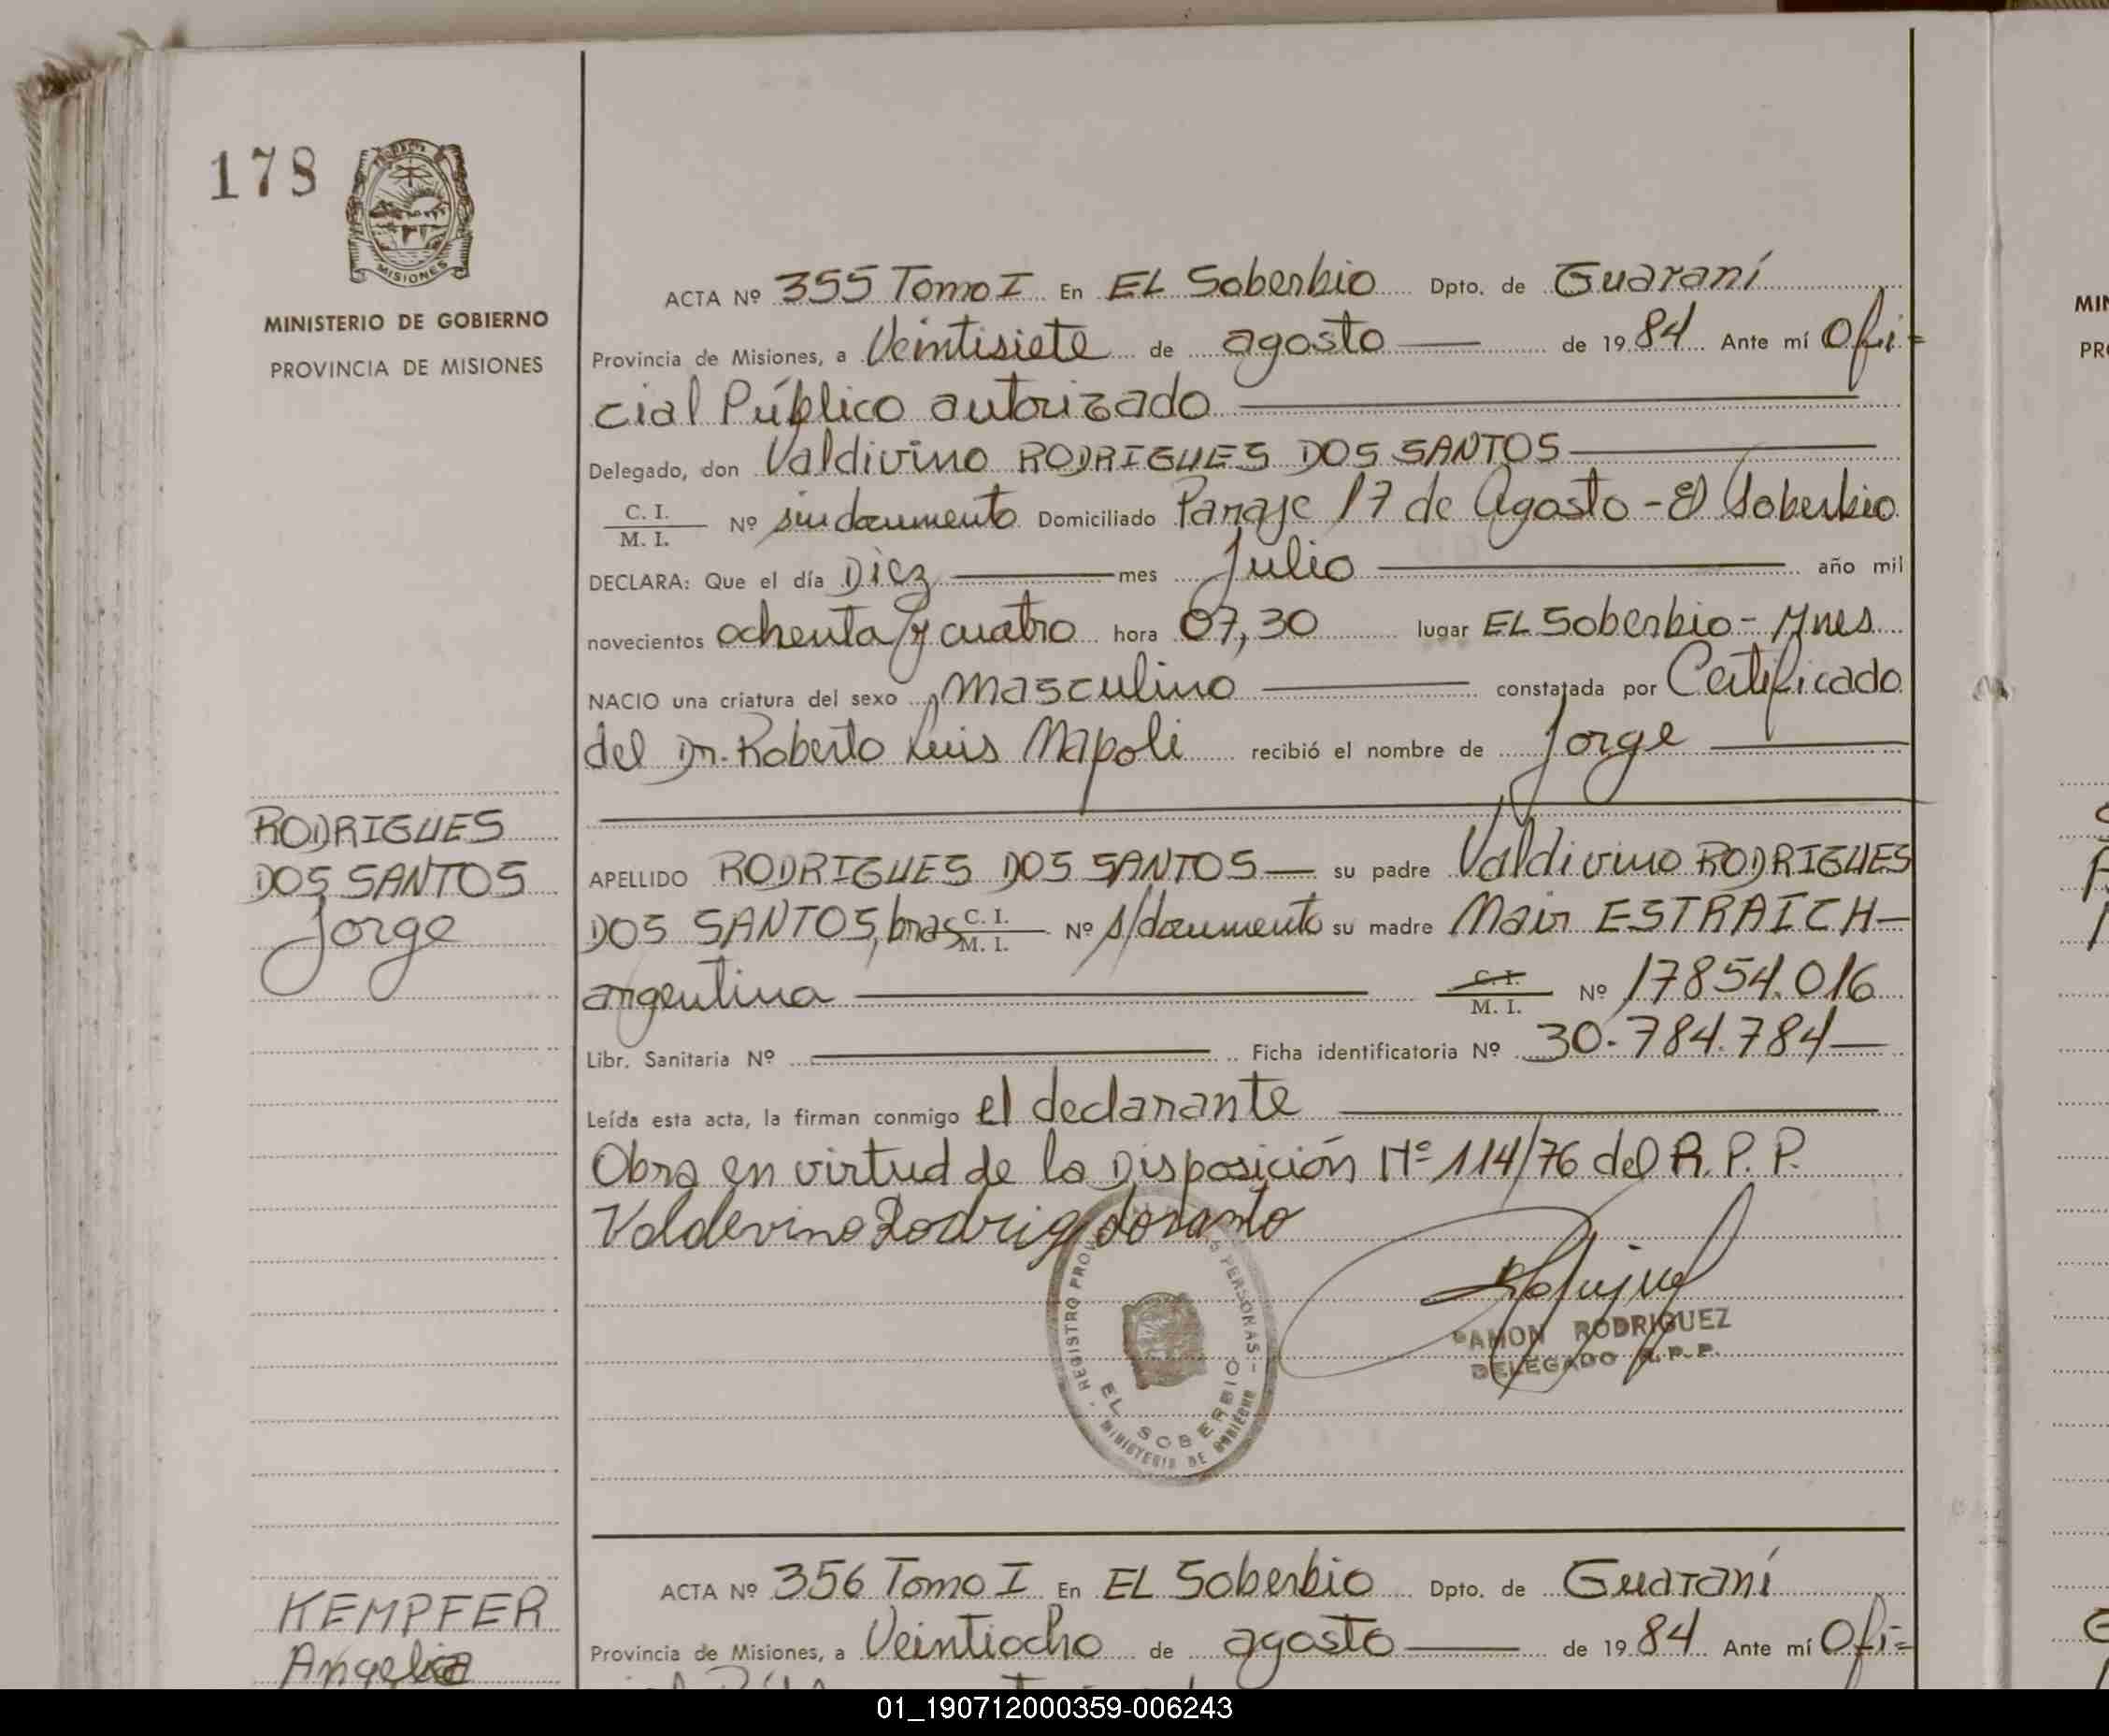 178
MISIONES
MINISTERIO DE GOBIERNO
PROVINCIA DE MISIONES
ACTA Nº 355 Tomo I En EL Soberbio Dpto. de Guaraní
Provincia de Misiones, a Veintisiete de agosto de 1984 Ante mí Ofi=
cial Público autorizado
Delegado, don Valdivino RODRIGUES DOS SANTOS
C. I.
M. I. Nº sin documento Domiciliado Paraje 17 de Agosto - El Soberbio
DECLARA: Que el día Diez mes Julio año mil
novecientos ochenta y cuatro hora 07,30 lugar EL Soberbio - Mnes
NACIO una criatura del sexo masculino constatada por Certificado
del Dr. Roberto Luis Napoli recibió el nombre de Jorge
RODRIGUES
DOS SANTOS
Jorge
APELLIDO RODRIGUES DOS SANTOS su padre Valdivino RODRIGUES
DOS SANTOS, bras C. I. M. I. Nº s/documento su madre Mair ESTRAICH
argentina C. I. M. I. Nº 17854.016
Libr. Sanitaria Nº Ficha identificatoria Nº 30.784.784
Leída esta acta, la firman conmigo el declarante
Obra en virtud de la Disposición Nº 114/76 del R.P.P.
Valdevino Rodrig dosanto
RAMON RODRIGUEZ
DELEGADO R.P.P.
REGISTRO PROV PERSONAS
EL SOBERBIO
MINISTERIO DE GOBIERNO
ACTA Nº 356 Tomo I En EL Soberbio Dpto. de Guaraní
KEMPFER
Angelica
Provincia de Misiones, a Veintiocho de agosto de 1984 Ante mí Ofi=
MIN
PRO
01_190712000359-006243